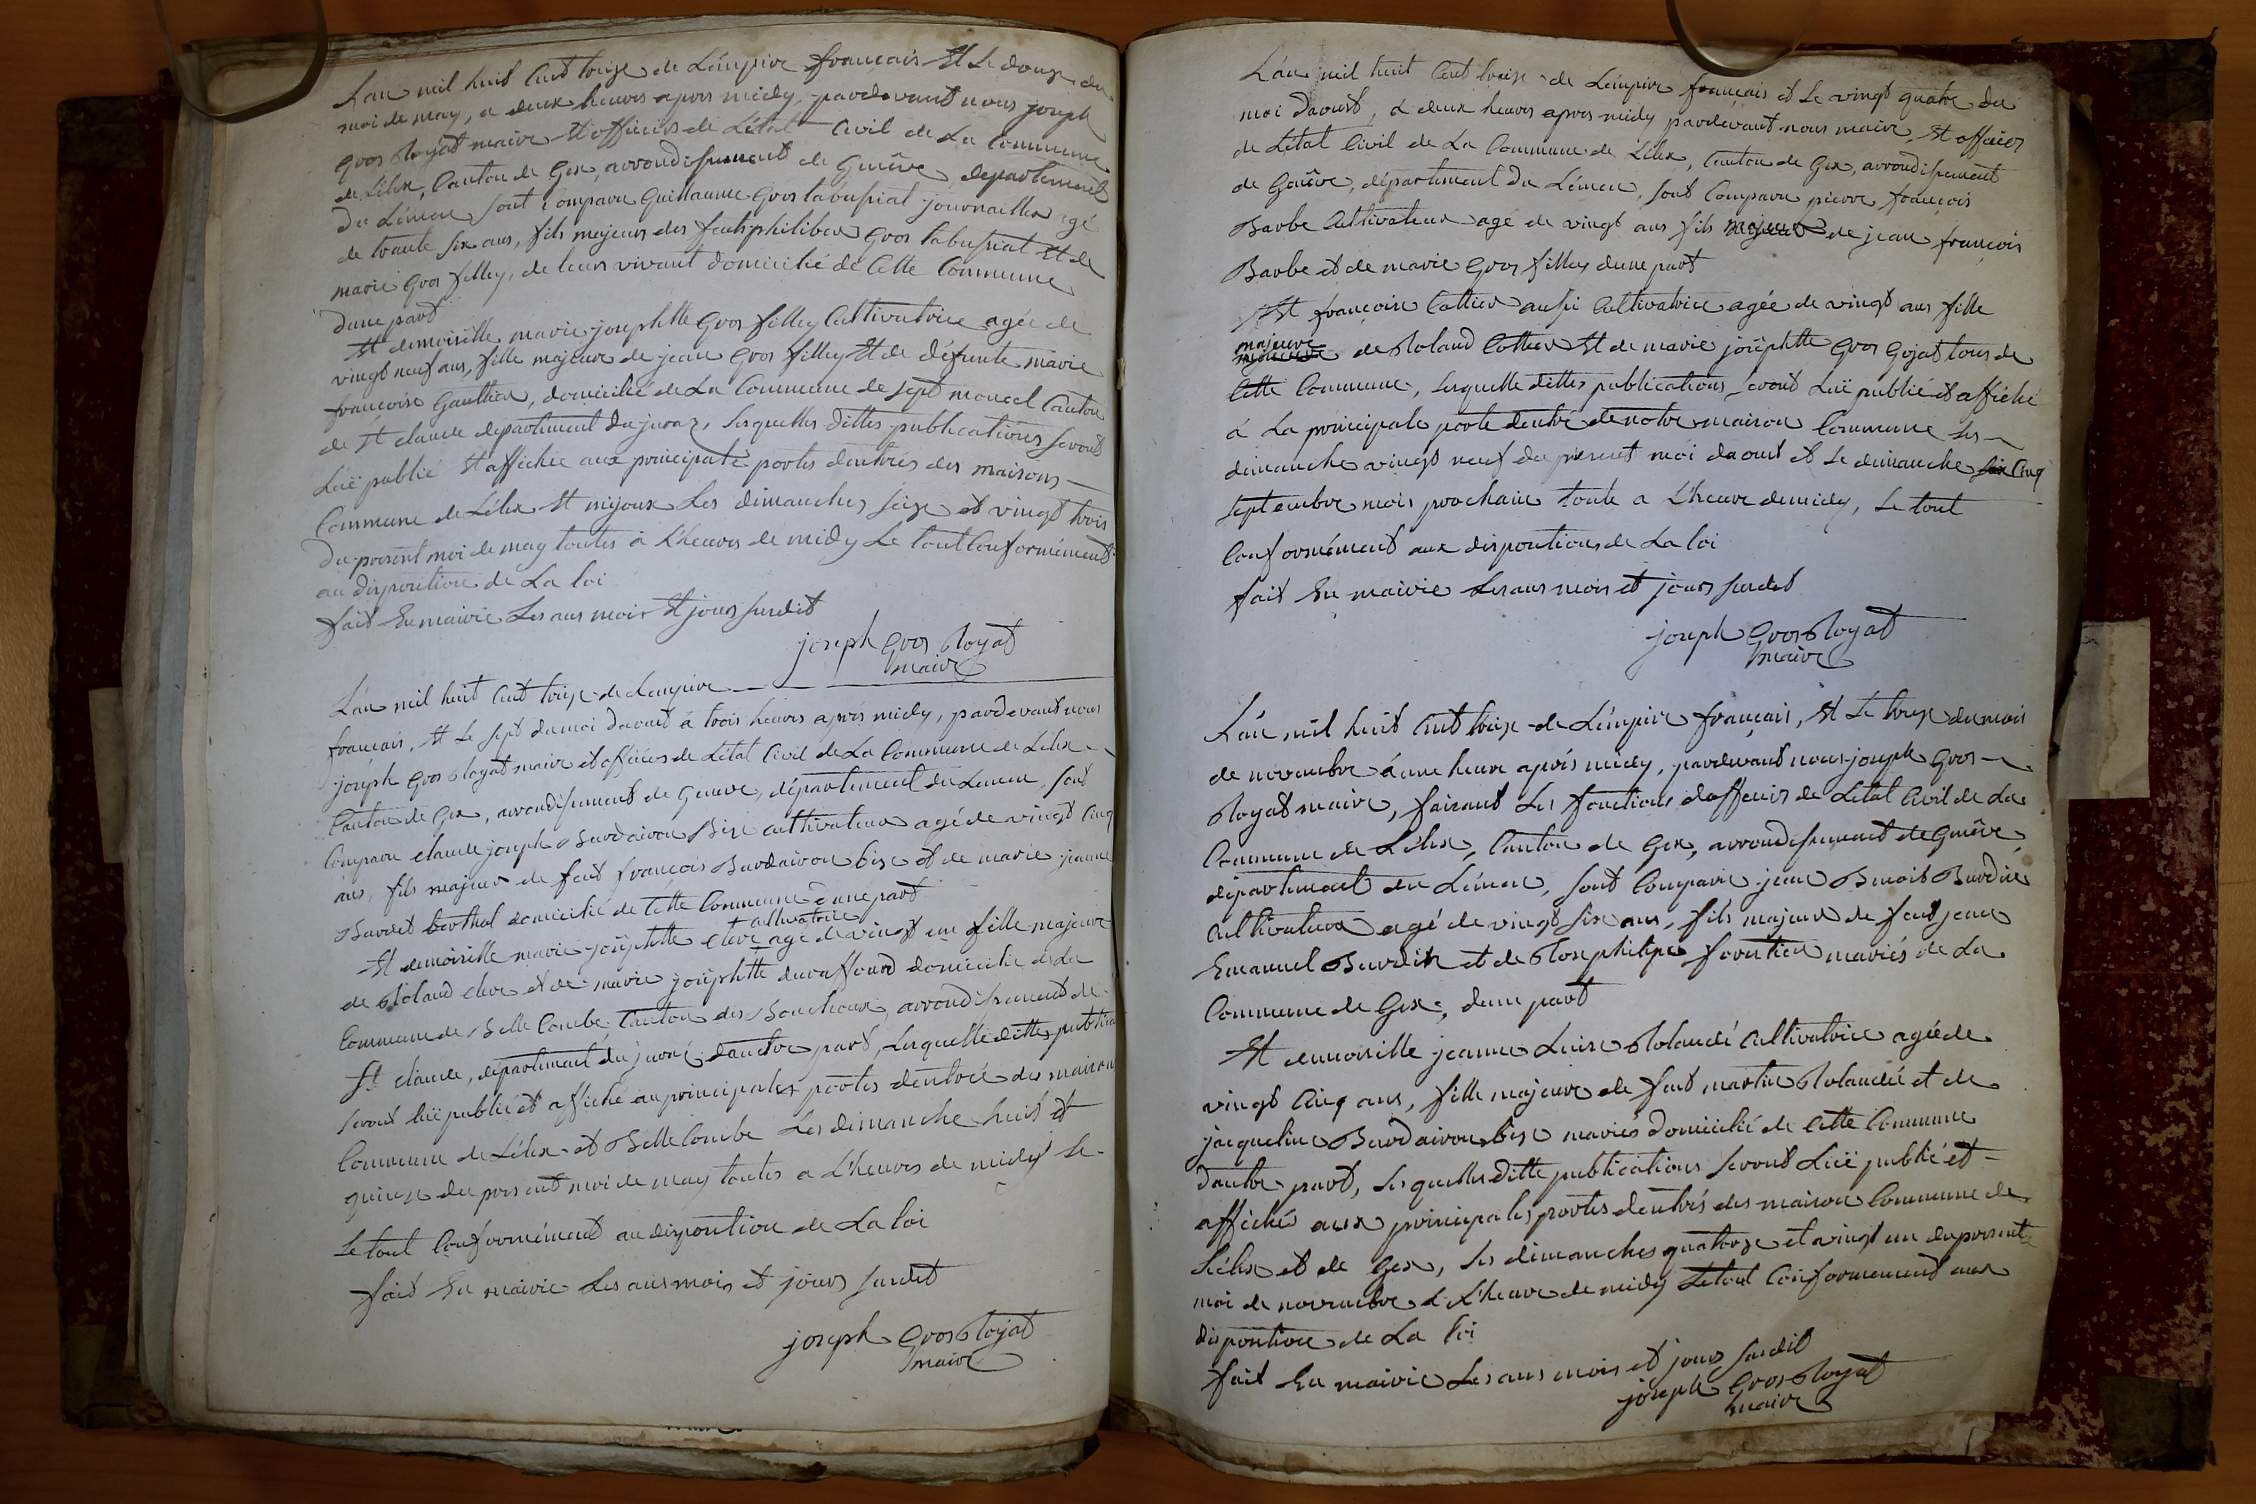 L'an mil huit Cent treize de L'émpire français Et Le douze du
moi de may, a deux heures apres midy, pardevant nous joseph
gros Royat maire Et officiers de L'état Civil de La Commune
de Lélex, Canton de Gex, arrondissement de Genêve departement
Du Léman sont Comparu Guillaume Gros taboussiat journaillier agé
de trante six ans, fils majeurs des feuts philiber gros tabusiat Et de
marie gros filley, de leurs vivant domicilié de Cette Commune
dune part
Et demoiselle marie josephtte Gros filley Cultivatrice agée de
vingt neuf ans, fille majeure de jean gros filley Et de défunte marie
françoise Gauthier, domicilié de La Commune de sept moncel Canton
de St claude departiment du juraz, Lesquelles dittes publications seront
Luë publié Et affichée aux principale portes dentrés des maisons
Commune de Lélex Et mijoux Les dimanches seize et vingt trois
Du present moi de may toutes à L'heures de midy Le tout Conformément
au disposition de La loi
fait En mairie Les ans mois Et jours susdit
joseph Gros Royat
maire
L'an mil huit Cent treize de L'empire
français, Et Le sept du moi d'aout à trois heures après midy, pardevant nous
joseph gros Royat maire et officiers de L'état Civil de La Commune de Lélex
Canton de Gex, arrondissement de Geneve, département du Leman, sont
Comparu claude joseph Burdairon Bize cultivateur agé de vingt Cinq
ans, fils majeur de feut françois Burdairon bize et de marie jeanne
Buvret berthal domicilié de Cette Commune d'une part
cultivatrice
Et demoiselle marie josephtte cleve agé de vingt un fille majeure
de Roland cleve et de marie josephtte duraffourd domicilié de La
Commune de Belle Combe Canton des Bouchoux, arrondissement de
St claude, départiment du jura d'autre part, Lesquelle dittes publica
seront luë publié et affiché au principales portes d'entrée des maison
Commune de Lélex et Belle Combe Les dimanche huit et
quinze du present moi de may toutes a L'heures de midy Le
Le tout Conformément au disposition de La loi
fait En mairie Les ans mois et jours susdit
joseph Gros Royat
maire
L'an mil huit Cent treize de L'émpire français et Le vingt quatre du
moi daoust, a deux heures apres midy pardevant nous maire, Et officier
de L'état Civil de La Commune de Lélex, Canton de Gex, arrondissement
de Genêve, département du Léman, sont Comparu pierre françois
Barbe Cultivateur agé de vingt ans fils majeur de jean françois
Barbe et de marie gros filley dune part
Et françoise Cottier aussi Cultivatrice agée de vingt ans fille
majeure
mineure de Roland Cottier Et de marie josephtte gros Gojat tous de
Cette Commune, Lesquelle dittes publications, seront Luë publié et affiché
à La principale porte dentré de notre maison Commune Les
dimanche vingt neuf du present moi daout et Le dimanche six Cinq
septembre mois prochain toute a L'heure de midy, Le tout
Conformément aux dispositions de La loi
fait En mairie Les ans mois et jours susdit
joseph Gros Royat
maire
L'an mil huit Cent treize de L'émpire français, Et Le treize du mois
de novembre à une heure après midy, pardevant nous joseph Gros
Royat maire, faisant Les fonctions d'officier de L'état Civil de La
Commune de Lélex, Canton de Gex, arrondissement de Genêve,
départiment du Léman, sont Comparu jean Benoit Burdin
Cultivateur agé de vingt six ans, fils majeur de feut jean
Emanuel Burdin et de Rose philipe forestier mariés de La
Commune de Gex, dune part
Et demoiselle jeanne Luise Rolandé Cultivatrice agée de
vingt Cinq ans, fille majeure de feut martin Rolandé et de
jacqueline Burdairon bise mariés domicilié de Cette Commune
dautre part, Lesquelles ditte publications seront Luë publié et
affichés aux principales portes dentrés des maison Commune de
Lélex et de Gex, Les dimanches quatorze et vingt un du present
moi de novembre a L'heure de midy Le tout Conformément aux
disposition de La loi
fait En mairie Les ans mois et jours susdit
joseph Gros Royat
maire